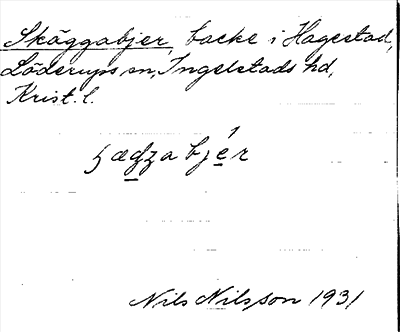 Skäggabjer, backe i Hagestad,
Löderups sn, Ingelstads hd,
Krist. l.
Nils Nilsson 1931